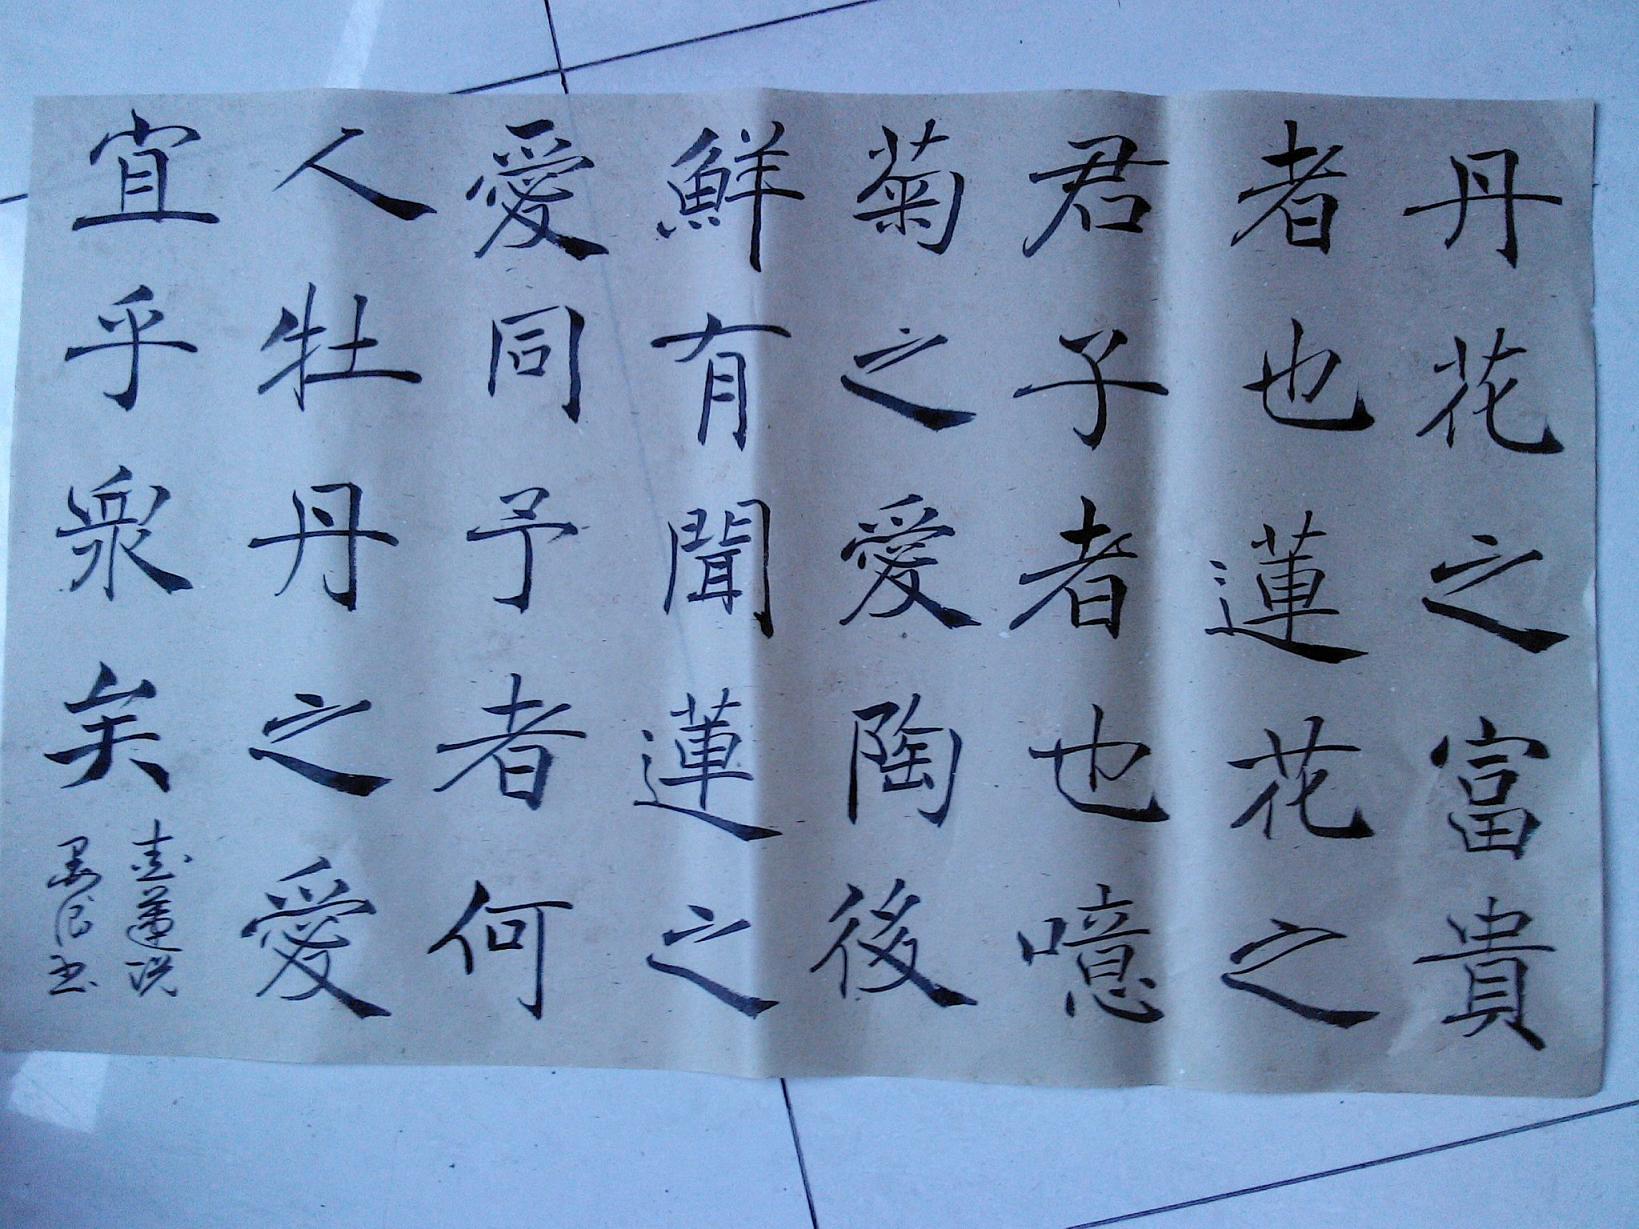 丹花之富貴
者也蓮花之
君子者也噫
菊之愛陶後
鮮有聞蓮之
愛同予者何
人牡丹之愛
宜乎眾矣
愛蓮説